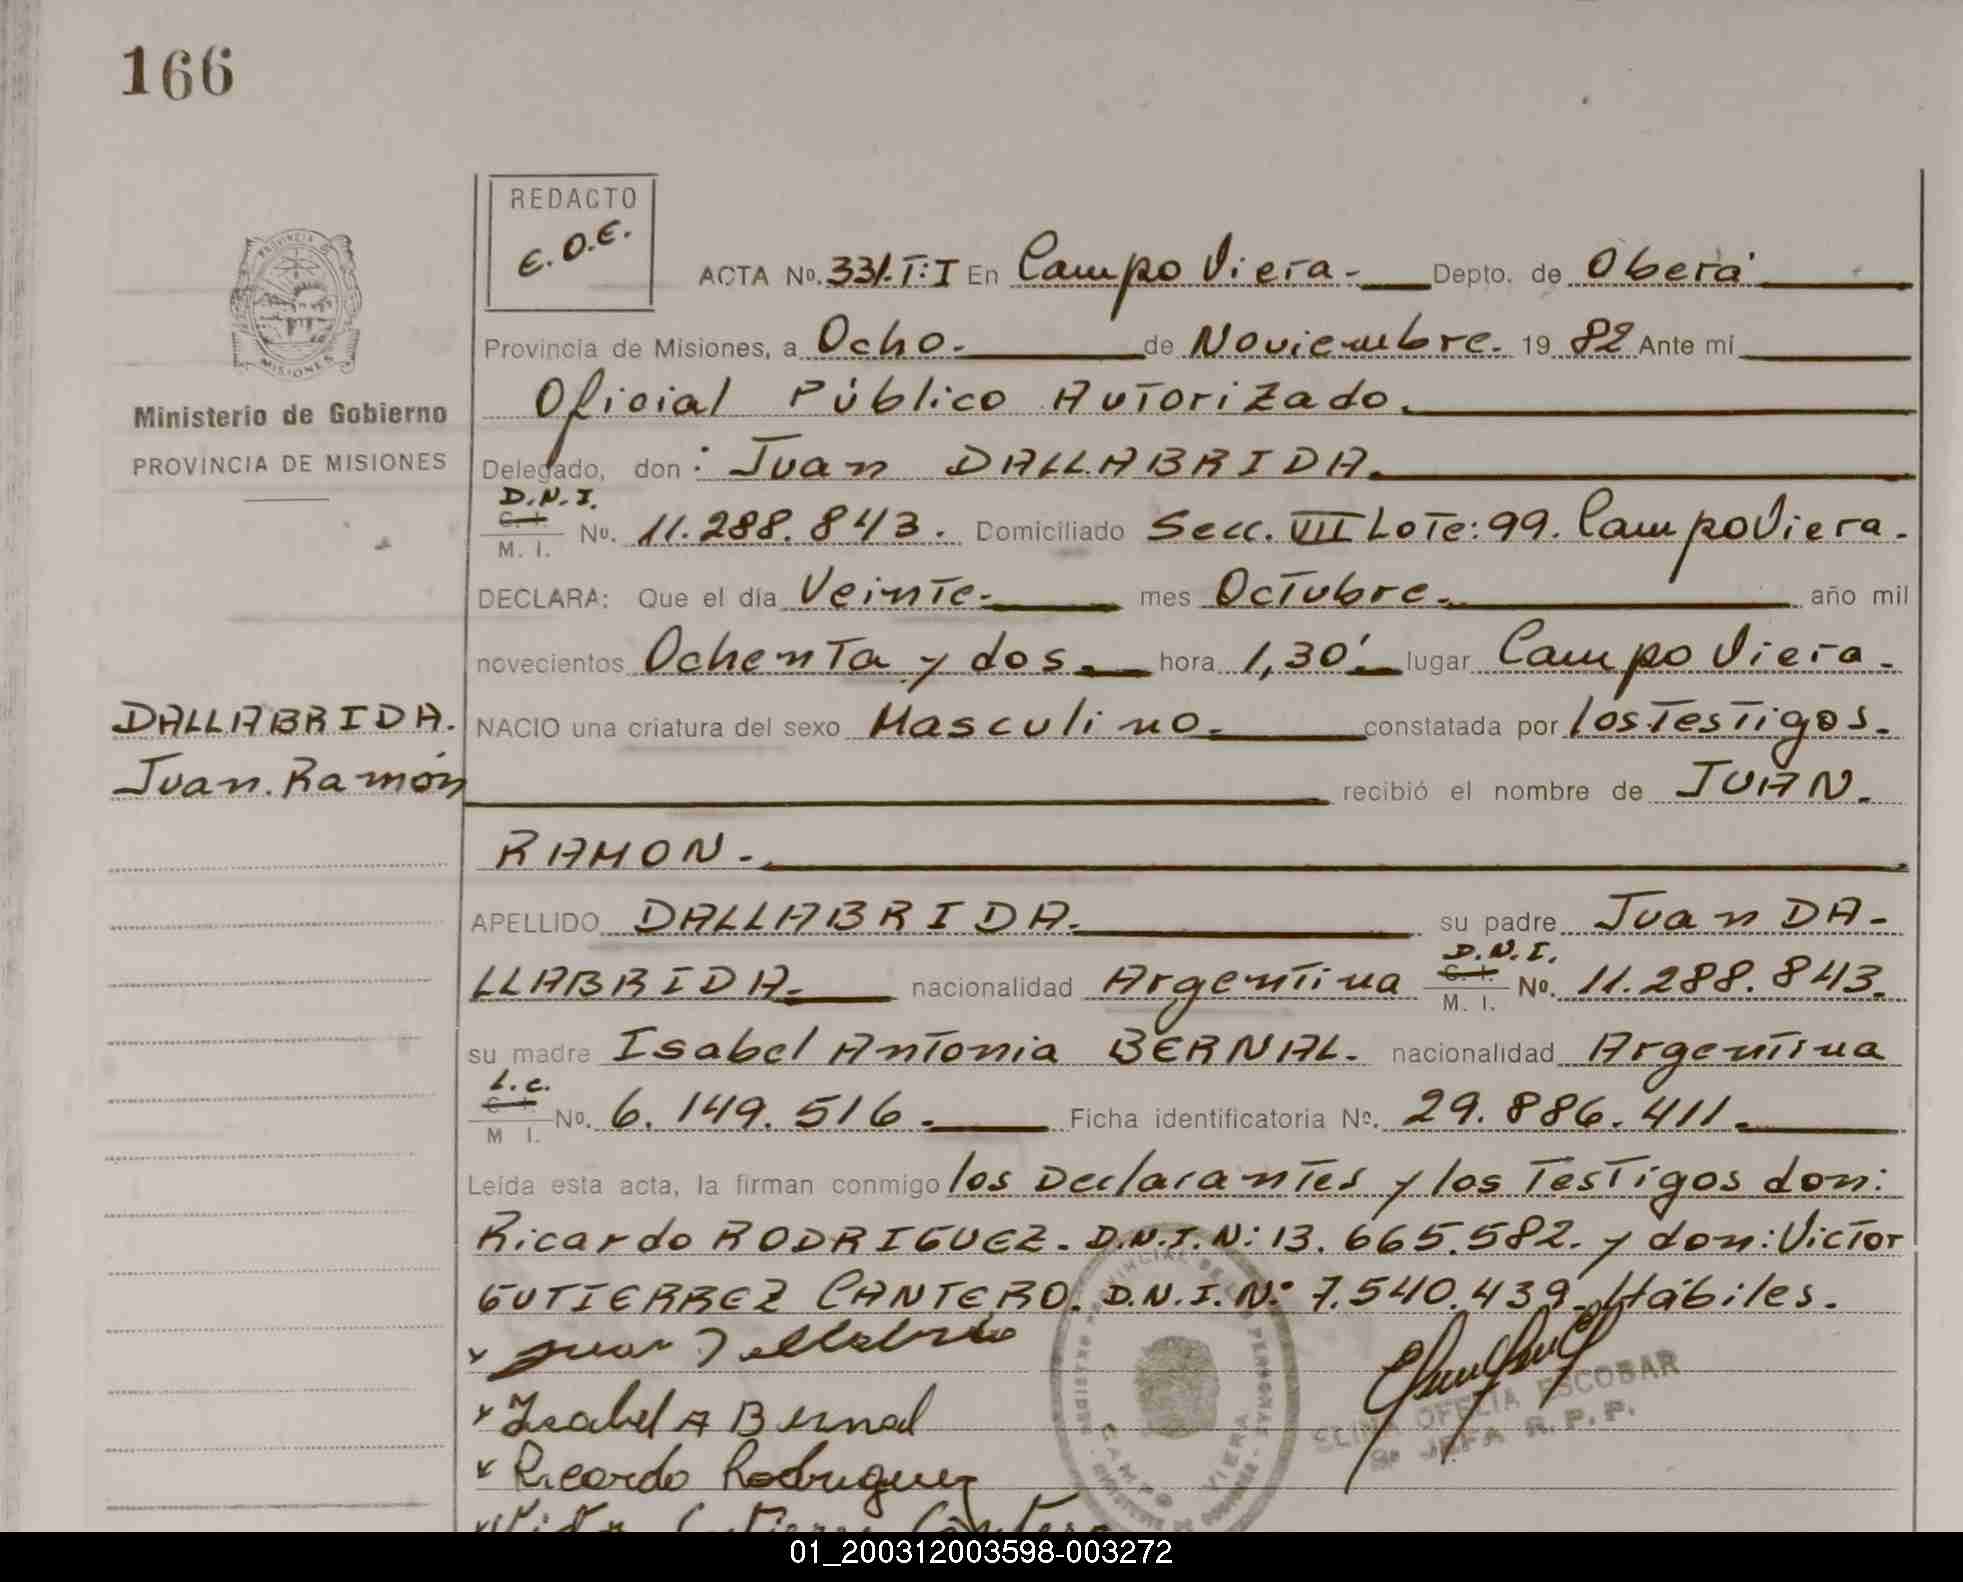 166
REDACTO
E.O.E.
ACTA No. 331.T:I En Campo Viera.- Depto. de Oberá
Provincia de Misiones, a Ocho.- de Noviembre.- 19 82 Ante mí
Ministerio de Gobierno
PROVINCIA DE MISIONES
Oficial Público Autorizado.
Delegado, don: Juan DALLABRIDA.
D.N.I.
C. I.
M. I. No. 11.288.843. Domiciliado Secc. VII Lote: 99. Campo Viera.
DECLARA: Que el día Veinte.- mes Octubre.- año mil
novecientos Ochenta y dos.- hora 1,30'.- lugar Campo Viera.-
DALLABRIDA.
Juan. Ramón
NACIO una criatura del sexo Masculino.- constatada por los Testigos.-
recibió el nombre de JUAN.
RAMON.-
APELLIDO DALLABRIDA.- su padre Juan DA-
LLABRIDA.- nacionalidad Argentina D.N.I. C. I. M. I. No. 11.288.843.
su madre Isabel Antonia BERNAL. nacionalidad Argentina
L.C.
C. I.
M I. No. 6.149.516.- Ficha identificatoria No. 29.886.411.-
Leída esta acta, la firman conmigo los Declarantes y los Testigos don:
Ricardo RODRIGUEZ. D.N.I. N: 13.665.582. y don: Victor
GUTIERREZ CANTERO. D.N.I. N° 7.540.439. Hábiles.
x Juan Dallabrida
x Isabel A Bernal
x Ricardo Rodriguez
CAMPO VIERA
ELINA OFELIA ESCOBAR
JEFA R.P.P.
01_200312003598-003272